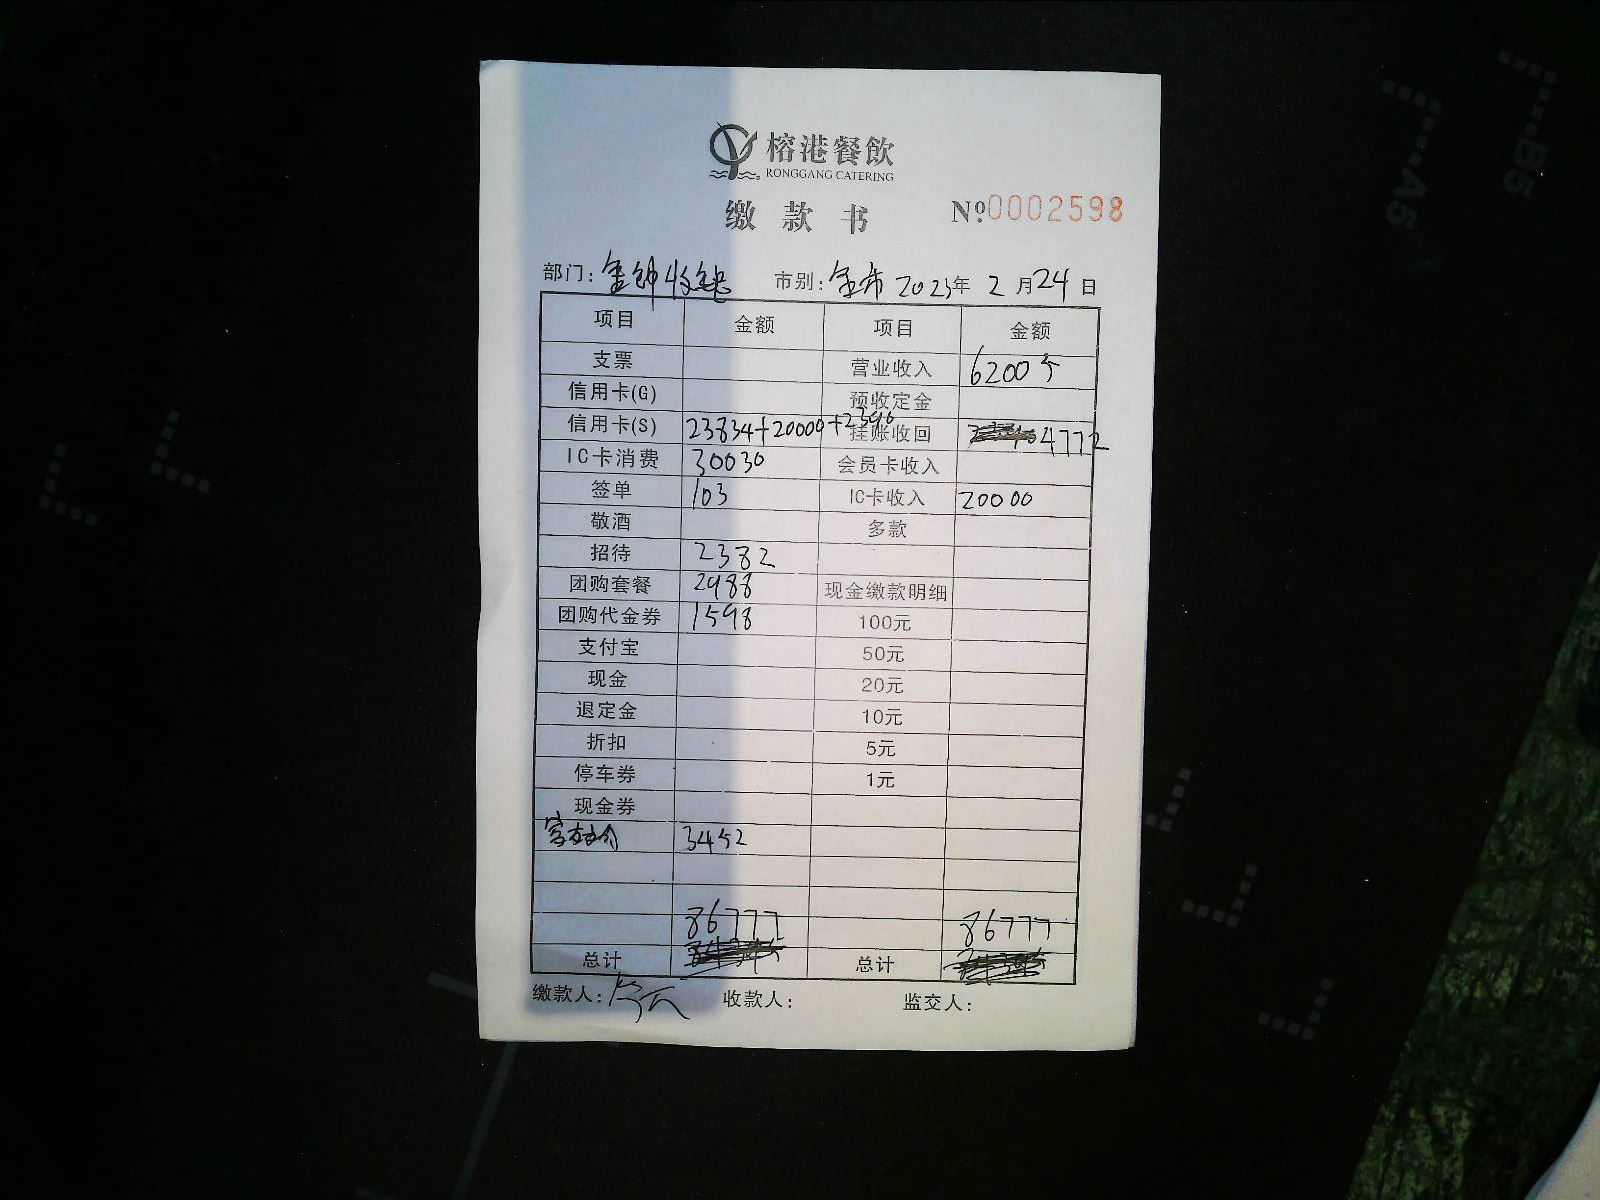 榕港餐飲
RONGGANG CATERING
缴款书 Nº 0002598
部门: 金钟收银 市别: 全市 2023年 2月24日
项目 金额 项目 金额
支票 营业收入 62005
信用卡(G) 预收定金
信用卡(S) 23834+20000+2390 挂账收回 4772
IC卡消费 30030 会员卡收入
签单 103 IC卡收入 20000
敬酒 多款
招待 2382
团购套餐 2988 现金缴款明细
团购代金券 1598 100元
支付宝 50元
现金 20元
退定金 10元
折扣 5元
停车券 1元
现金券
3452
86777 86777
总计 总计
缴款人: 收款人: 监交人:
A5
B5